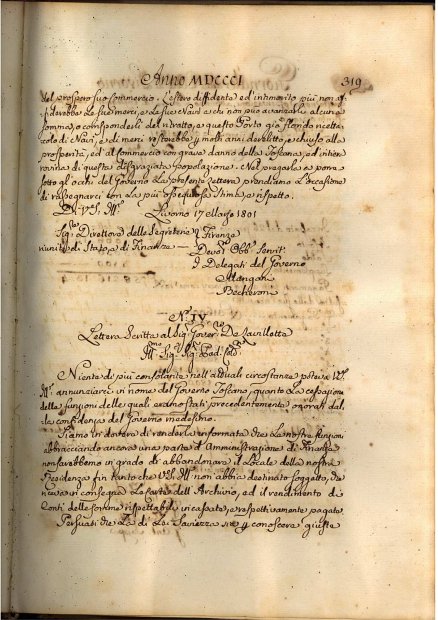 Anno MDCCCI
319
del prospero suo Commercio. L'estero diffidente ed intimorito più non af-
fiderebbe le sue merci, e le sue Navi a chi non può avanzarli alcuna
somma, o corrisponderli del nolo, e questo Porto già florido ricetta-
colo di Navi, e di merci resterebbe p molti anni derelitto, e chiuso alla
prosperità, ed al commercio con grave danno della Toscana, ed intiera
rovina di questa disgraziata popolazione. Nel pregarla a porre
sotto gl'occhi del Governo la presente Lettera prendiamo l'occasione
di rassegnarci con la più ossequiosa stima, e rispetto.
Di V.S. Ill.
Livorno 17 Marzo 1801
Sig. Direttore delle Segreterie Firenze
riunite di Stato, e di Finanze
Devot. Obb. Servit.
I Delegati del Governo
Mangan
Becheroni
N. IV
Lettera Scritta al Sig. Gover. De Lavillette
Ill. Sig. Sig. Pad. Col.
Niente di più consolante nell'attuali circostanze poteva V.S.
Ill. annunziarci in nome del Governo Toscano, quanto la cessazione
delle funzioni delle quali eramo stati precedentemente onorati dal-
la confidenza del Governo medesimo.
Siamo in dovere di renderla informata che le nostre funzioni
abbracciando ancora una parte d'Amministrazione di Finanza
non sarebbemo in grado di abbandonare il Locale della nostra
Residenza fin tanto che V.S. Ill. non abbia destinato soggetto, che
riceva in consegna le carte dell'Archivio, ed il rendimento di
Conti delle somme rispettabili incassate, e rispettivamente pagate.
Persuasi che la di Lei Saviezza sia p conoscere giuste